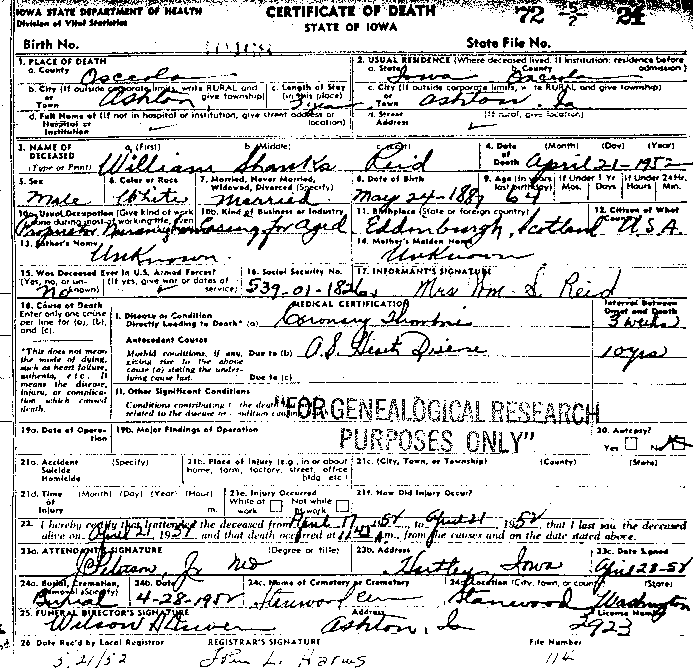 IOWA STATE DEPARTMENT OF HEALTH
Division of Vital Statistics
CERTIFICATE OF DEATH
STATE OF IOWA
72
Birth No.
State File No.
1. PLACE OF DEATH
a. County Osceola
2. USUAL RESIDENCE (Where deceased lived. If institution: residence before admission)
a. State Iowa b. County Osceola
b. City (If outside corporate limits, write RURAL and give township) or Town Ashton
c. Length of Stay (in this place) 3 years
c. City (If outside corporate limits, write RURAL and give township) or Town Ashton, Ia
d. Full Name of (If not in hospital or institution, give street address or location) Hospital or Institution
d. Street Address (If rural, give location)
3. NAME OF DECEASED (Type or Print)
a. (First) b. (Middle) c. (Last)
William Shanks Reid
4. Date of Death (Month) (Day) (Year) April 21-1952
5. Sex Male
6. Color or Race White
7. Married, Never Married, Widowed, Divorced (Specify) Married
8. Date of Birth May 24-1887
9. Age (In years last birthday) 64 If Under 1 Yr Mos. Days If Under 24 Hr. Hours Min.
10a. Usual Occupation (Give kind of work done during most of working life, even Proprietor Nursing home
10b. Kind of Business or Industry Caring for Aged
11. Birthplace (State or foreign country) Eddenburgh, Scotland
12. Citizen of What Country U.S.A.
13. Father's Name Unknown
14. Mother's Maiden Name Unknown
15. Was Deceased Ever in U.S. Armed Forces? (Yes, no, or unknown) (If yes, give war or dates of service) No
16. Social Security No. 539-01-1826
17. INFORMANT'S SIGNATURE Mrs Wm. S. Reid
18. Cause of Death
Enter only one cause per line for (a), (b), and (c).
MEDICAL CERTIFICATION
Interval Between Onset and Death
I. Disease or Condition Directly Leading to Death* (a) Coronary Thrombosis 3 weeks
Antecedent Causes
Morbid conditions, if any, giving rise to the above cause (a) stating the underlying cause last.
Due to (b) A.S. Heart Disease 10 yrs
Due to (c)
*This does not mean the mode of dying, such as heart failure, asthenia, etc. It means the disease, injury, or complication which caused death.
II. Other Significant Conditions
Conditions contributing to the death related to the disease or condition
"FOR GENEALOGICAL RESEARCH
PURPOSES ONLY"
19a. Date of Operation
19b. Major Findings of Operation
20. Autopsy? Yes No
21a. Accident Suicide Homicide (Specify)
21b. Place of Injury (e.g., in or about home, farm, factory, street, office bldg etc.)
21c. (City, Town, or Township) (County) (State)
21d. Time of Injury (Month) (Day) (Year) (Hour) m.
21e. Injury Occurred While at work Not while at work
21f. How Did Injury Occur?
22. I hereby certify that I attended the deceased from April 17, 1952, to April 21, 1952, that I last saw the deceased
alive on April 21, 1952, and that death occurred at m., from the causes and on the date stated above.
23a. ATTENDANT'S SIGNATURE (Degree or title) Jr MD
23b. Address Hartley, Iowa
23c. Date Signed April 28-52
24a. Burial, Cremation, Removal (Specify) Burial
24b. Date 4-28-1952
24c. Name of Cemetery or Crematory
24d. Location (City, town, or county) (State) Stanwood Washington
25. FUNERAL DIRECTOR'S SIGNATURE Wilson
Address Ashton, Ia
License Number 2923
26 Date Rec'd by Local Registrar 5/21/52
REGISTRAR'S SIGNATURE John L.
File Number 114